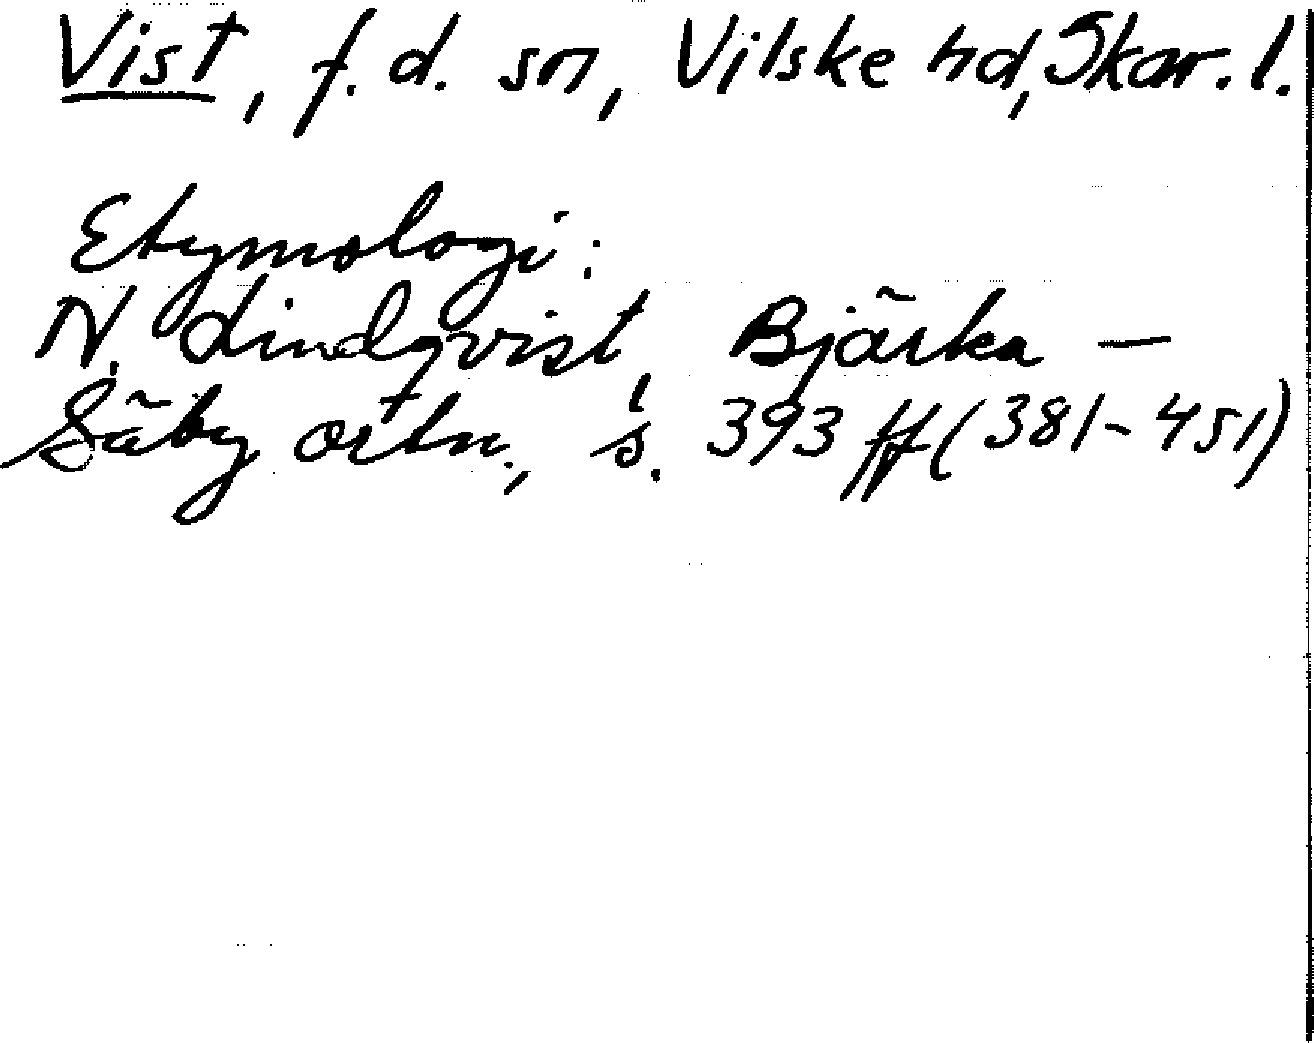 Vist, f.d. sn, Vilske hd, Skar. l.
Etymologi:
N. Lindqvist, Bjärka —
Säby ortn., s. 393 ff (381-451)